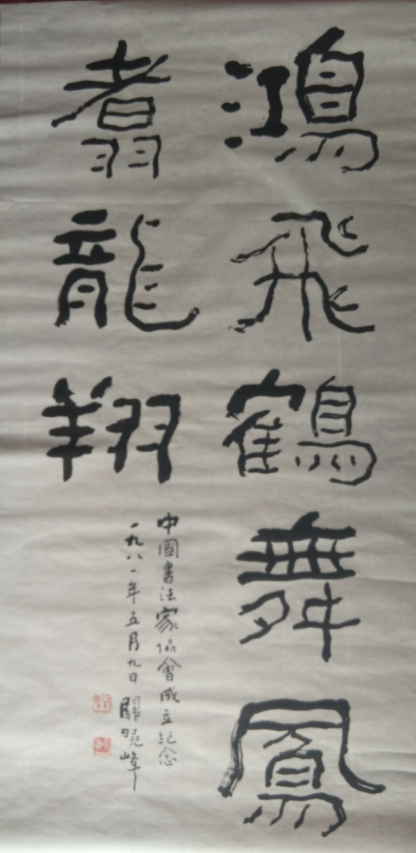 鴻飛鶴舞鳳
翥龍翔
中國書法家協會成立紀念
一九八一年五月九日 歸曉峰